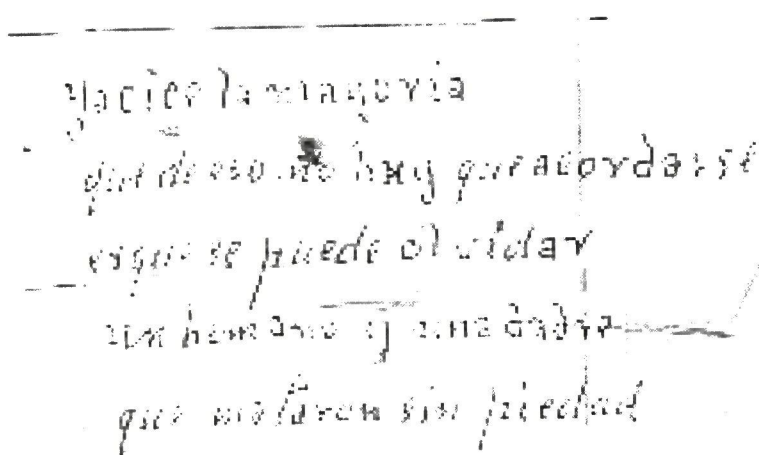 y a cice la mallovia
que de eso no hay que acovdarse
esque se puede olvidar
un hemano y una dadre
que mataron sin piedad